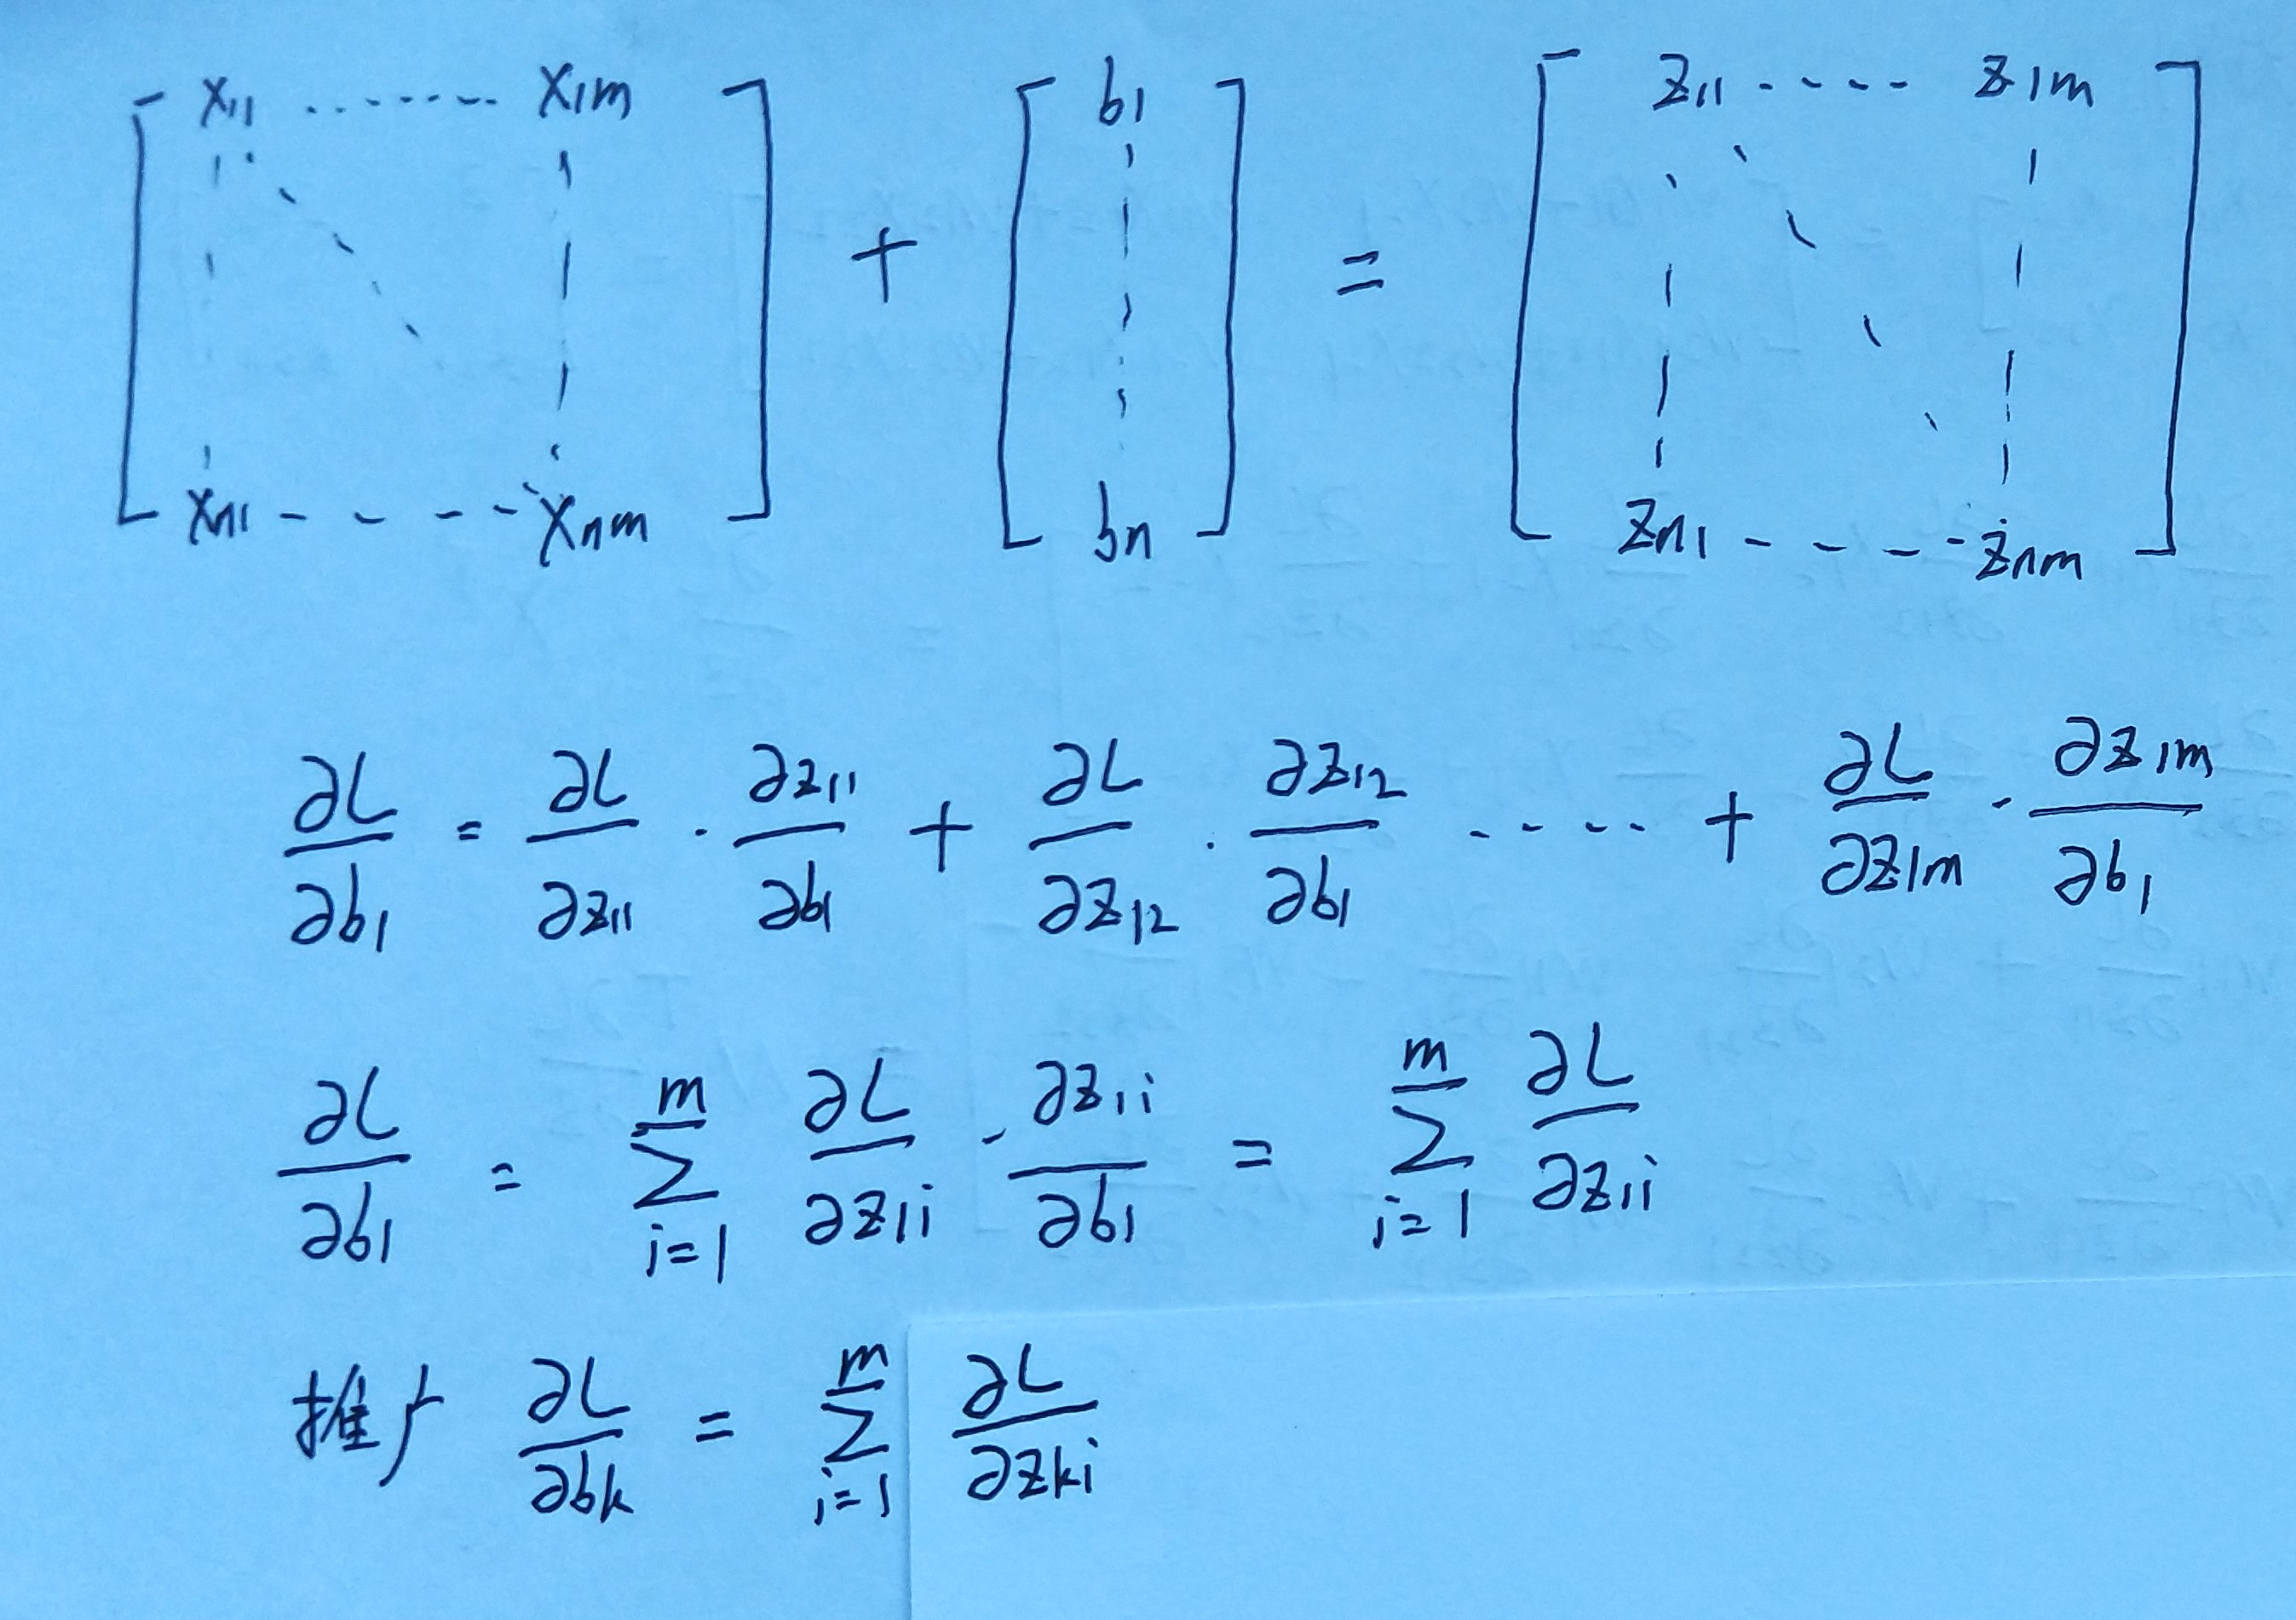 [ x11 ....... x1m ] + [ b1 ] = [ z11 ---- z1m ]
[ xn1 ----- xnm ] [ bn ] [ zn1 ----- znm ]
∂L/∂b1 = ∂L/∂z11 · ∂z11/∂b1 + ∂L/∂z12 · ∂z12/∂b1 ----- + ∂L/∂z1m · ∂z1m/∂b1
∂L/∂b1 = ∑_{i=1}^{m} ∂L/∂z1i · ∂z1i/∂b1 = ∑_{i=1}^{m} ∂L/∂z1i
推广 ∂L/∂bk = ∑_{i=1}^{m} ∂L/∂zki